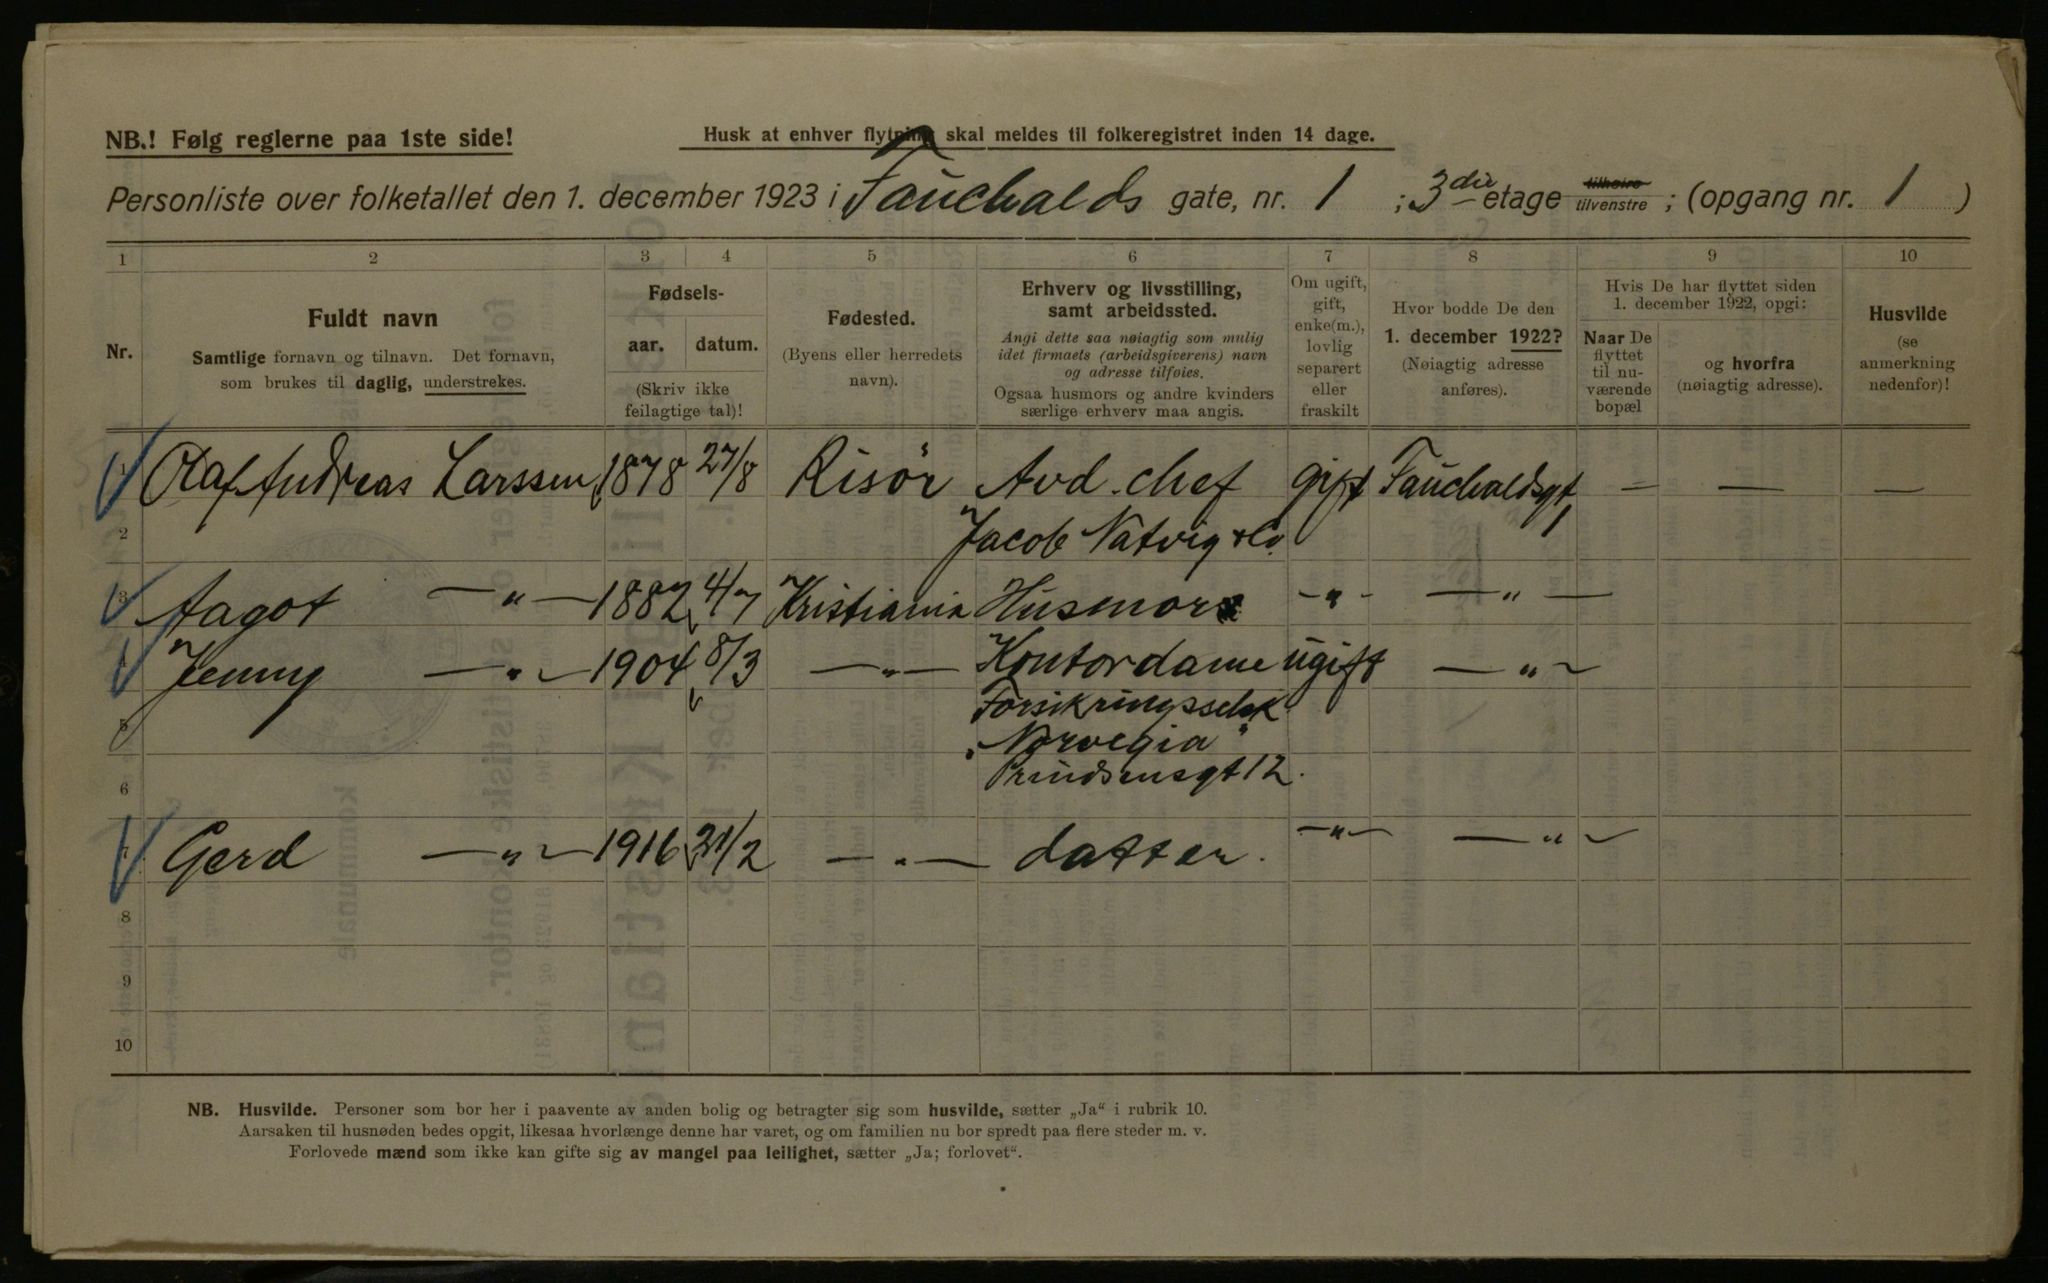 NB.! Følg reglerne paa 1ste side!
Husk at enhver flytning skal meldes til folkeregistret inden 14 dage.
Personliste over folketallet den 1. december 1923 i Fauchalds gate, nr. 1 ; 3die etage tilhøire tilvenstre ; (opgang nr. 1 )
1 2 3 4 5 6 7 8 9 10
Nr.
Fuldt navn
Samtlige fornavn og tilnavn. Det fornavn,
som brukes til daglig, understrekes.
Fødsels-
aar. datum.
(Skriv ikke
feilagtige tal)!
Fødested.
(Byens eller herredets
navn).
Erhverv og livsstilling,
samt arbeidssted.
Angi dette saa nøiagtig som mulig
idet firmaets (arbeidsgiverens) navn
og adresse tilføies.
Ogsaa husmors og andre kvinders
særlige erhverv maa angis.
Om ugift,
gift,
enke(m.),
lovlig
separert
eller
fraskilt
Hvor bodde De den
1. december 1922?
(Nøiagtig adresse
anføres).
Hvis De har flyttet siden
1. december 1922, opgi:
Naar De
flyttet
til nu-
værende
bopæl
og hvorfra
(nøiagtig adresse).
Husvilde
(se
anmerkning
nedenfor)!
1 Olaf Andreas Larssen 1878 27/8 Risör Avd. chef gift Fauchaldsgt 1 — — —
2 Jacob Natvig & Co.
3 Aagot —"— 1882 4/7 Kristiania Husmor —"— —"—
4 Jenny —"— 1904 8/3 —"— Kontordame ugift —"—
5 Forsikringsselsk
"Norvegia"
6 Prindsensgt 12.
7 Gerd —"— 1916 21/2 —"— datter. —"— —"—
8
9
10
NB. Husvilde. Personer som bor her i paavente av anden bolig og betragter sig som husvilde, sætter „Ja“ i rubrik 10.
Aarsaken til husnøden bedes opgit, likesaa hvorlænge denne har varet, og om familien nu bor spredt paa flere steder m. v.
Forlovede mænd som ikke kan gifte sig av mangel paa leilighet, sætter „Ja; forlovet“.